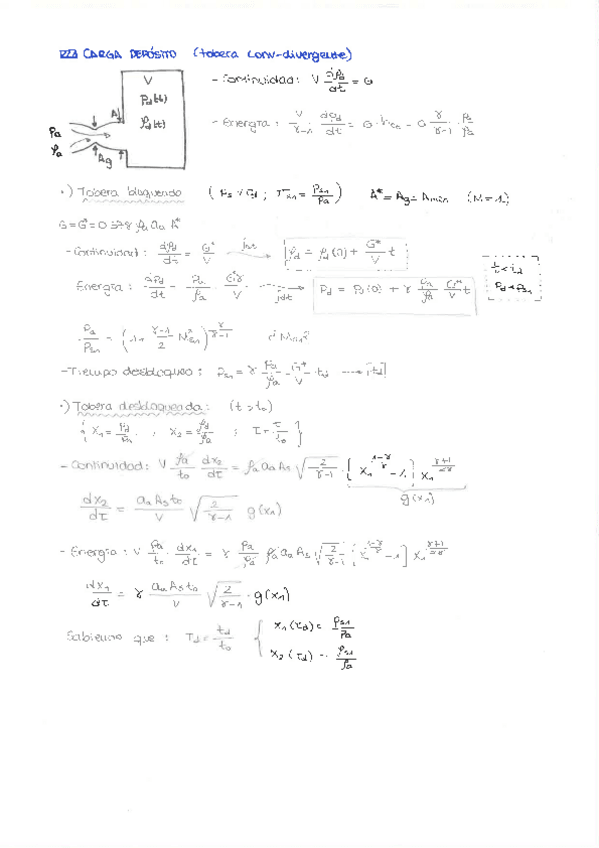 CARGA DEPÓSITO (tobera conv-divergente)
V
p_d(t)
ρ_d(t)
p_a
ρ_a
A_g
- Continuidad: V dρ_d/dt = G
- Energía: V/(γ-1) dp_d/dt = G γ/(γ-1) p_a/ρ_a
·) Tobera bloqueada A* = A_g = A_min (M=1)
G = G* = 0'578 ρ_a a_a A*
- Continuidad: dρ_d/dt = G*/V → ρ_d = ρ_d(0) + G*/V t
Energía: dp_d/dt = p_a/ρ_a G*γ/V → p_d = p_d(0) + γ p_a/ρ_a G*/V t
t < t_d
- Tiempo desbloqueo:
·) Tobera desbloqueada: (t > t_d)
{ x_1 = p_d/p_a ; x_2 = ρ_d/ρ_a ; τ = t/t_0 }
- Continuidad: V ρ_a/t_0 dx_2/dτ = ρ_a a_a A_s √(2/(γ-1)) [x_1^((1-γ)/γ) - 1] x_1^((γ+1)/2γ)
g(x_1)
dx_2/dτ = a_a A_s t_0/V √(2/(γ-1)) g(x_1)
- Energía: V p_a/t_0 · dx_1/dτ = γ p_a/ρ_a ρ_a a_a A_s √(2/(γ-1)) [x_1^((1-γ)/γ) - 1] x_1^((γ+1)/2γ)
dx_1/dτ = γ a_a A_s t_0/V √(2/(γ-1)) · g(x_1)
Sabiendo que: τ_d = t_d/t_0 { x_1(τ_d) = p_s1/p_a
x_2(τ_d) = ρ_sd/ρ_a